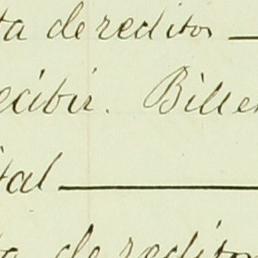 ta de reditos —
ecibir. Bille
ital —
ta de reditos